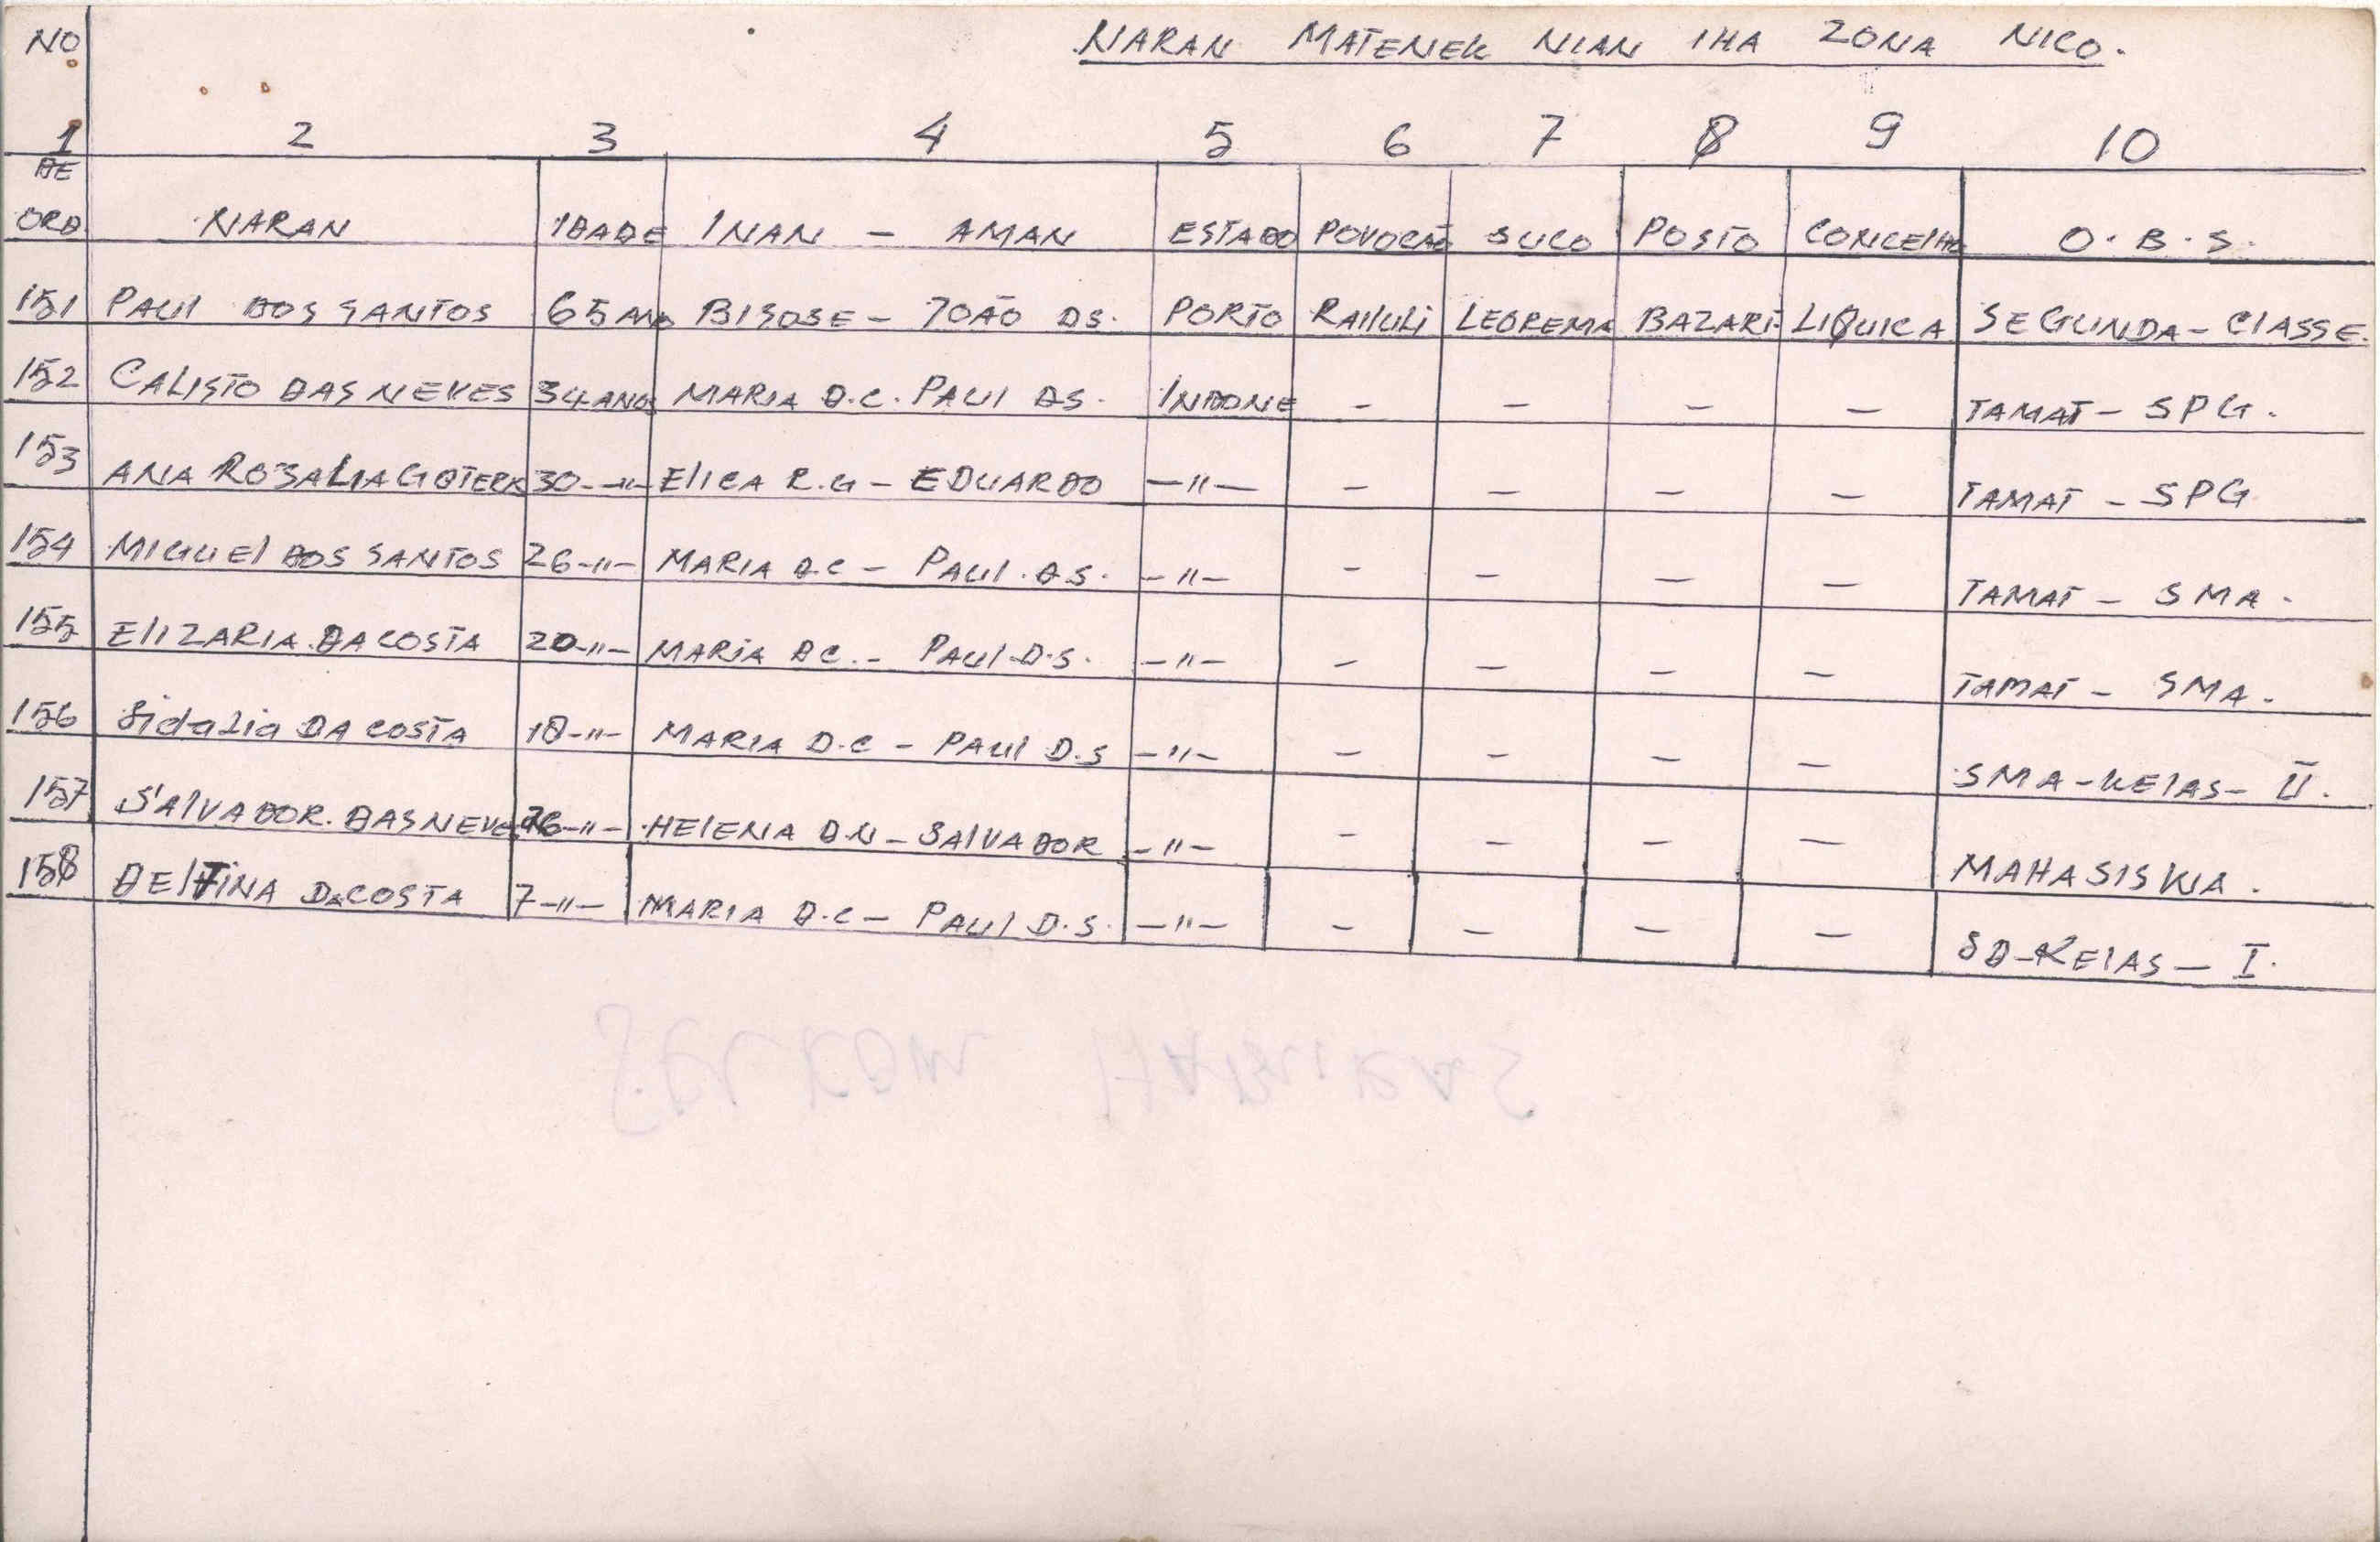 NO NARAN MATENEK NIAN IHA ZONA NICO.
1 2 3 4 5 6 7 8 9 10
DE
ORD NARAN IDADE INAN - AMAN ESTADO POVOCÃO SUCO POSTO CONCELHO O.B.S.
151 PAUL DOS SANTOS 65 ANO BISOSE - JOÃO DS. PORTO RAILULI LEOREMA BAZARI LIQUICA SEGUNDA - CLASSE.
152 CALISTO DAS NEVES 34 ANOS MARIA D.C. PAUL DS. INDONE - - - - TAMAT - SPG.
153 ANA ROSALIA GOTERK 30 -"- ELICA R.G - EDUARDO -"- - - - - TAMAT - SPG
154 MIGUEL DOS SANTOS 26 -"- MARIA D.C - PAUL.DS. -"- - - - - TAMAT - SMA.
155 ELIZARIA.DA COSTA 20 -"- MARIA DC. - PAUL D.S. -"- - - - - TAMAT - SMA.
156 Sidalia DA COSTA 18 -"- MARIA D.C - PAUL D.S -"- - - - - SMA - KELAS - II.
157 SALVADOR. DAS NEVES 26 -"- HELENA D.N - SALVADOR -"- - - - - MAHASISWA.
158 DELFINA DA COSTA 7 -"- MARIA D.C - PAUL D.S. -"- - - - - SD - KELAS - I.